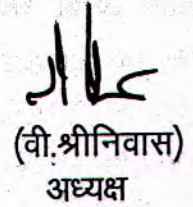 (वी.श्रीनिवास)
अध्यक्ष